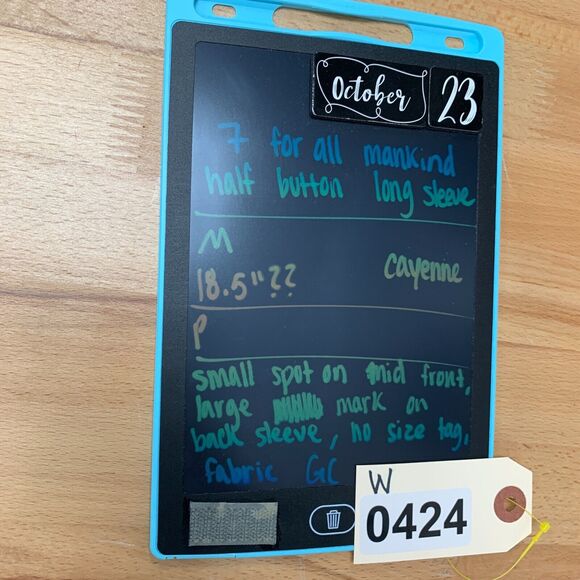 October 23
7 for all mankind
half button long sleeve
M
18.5"?? cayenne
P
small spot on mid front,
large mark on
back sleeve, no size tag,
fabric GC
W
0424